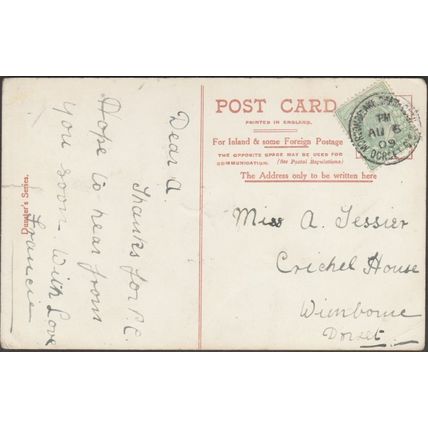 POST CARD
PRINTED IN ENGLAND.
For Inland & some Foreign Postage
THE OPPOSITE SPACE MAY BE USED FOR
COMMUNICATION. (See Postal Regulations)
The Address only to be written here
PM
AU 5
09
Dear A.
Thanks for P.C.
Hope to hear from
you soon. With Love
Francie
Miss A. Tessier
Crichel House
Wimborne
Dorset
Dunster's Series.